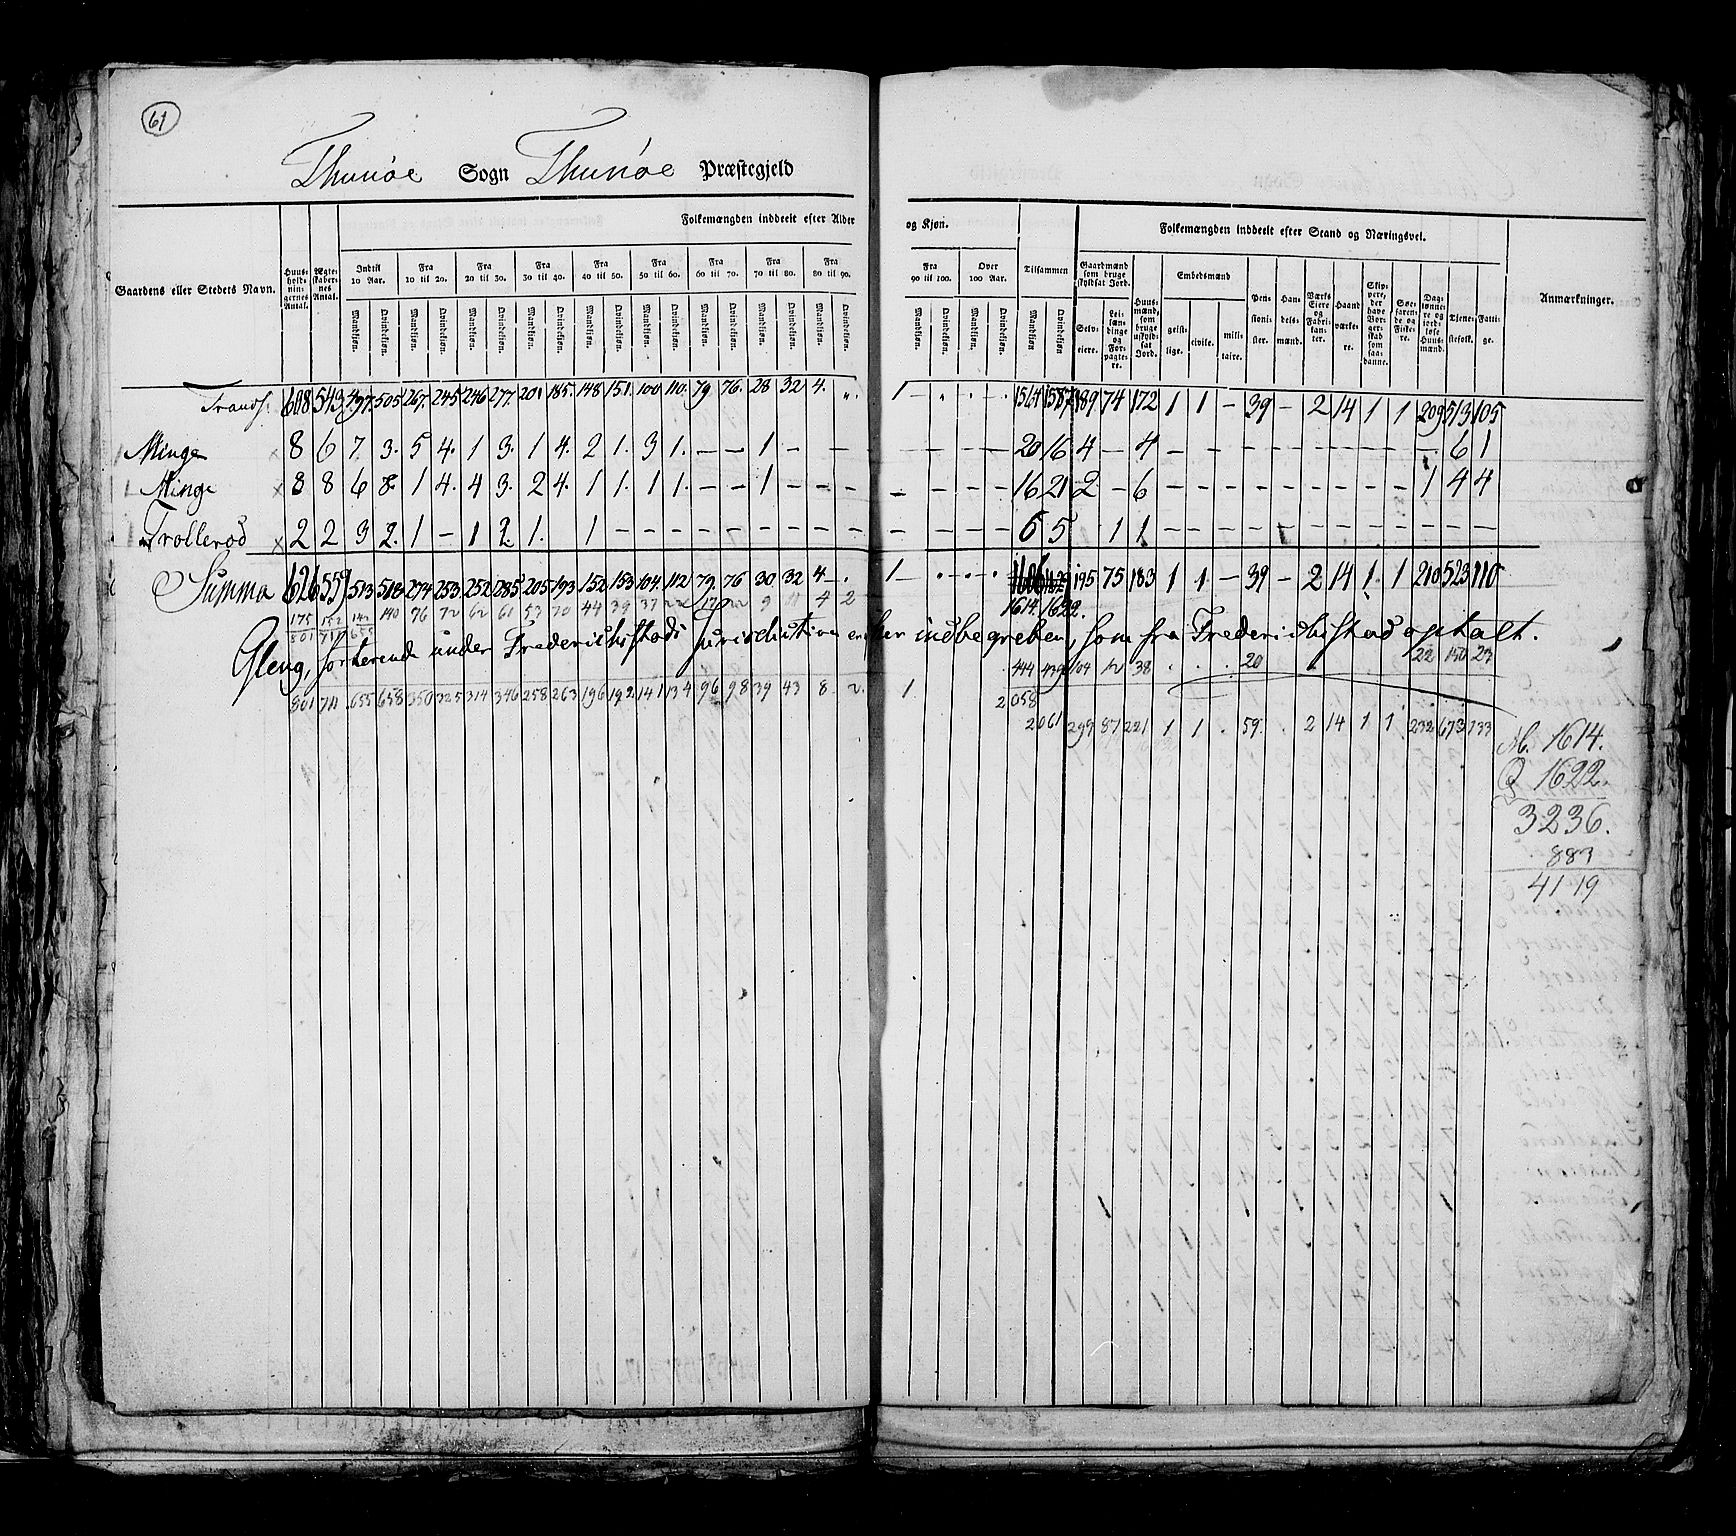 61
Thunøe Sogn Thunøe Præstegjeld
Folkemængden inddeelt efter Alder og Kjøn.
Folkemængden inddeelt efter Stand og Næringsvei.
Gaardens eller Stedets Navn.
Huus-holdnin-gernes Antal.
Ægte-skaber-nes Antal.
Indtil 10 Aar.
Fra 10 til 20.
Fra 20 til 30.
Fra 30 til 40.
Fra 40 til 50.
Fra 50 til 60.
Fra 60 til 70.
Fra 70 til 80.
Fra 80 til 90.
Fra 90 til 100.
Over 100 Aar.
Tilsammen
Mandkiøn. Qvindekiøn.
Gaardmænd som bruge skyldsat Jord.
Selveiere.
Leilændinge og Forpagtere.
Huusmænd, som bruge uskyldsat Jord.
Embedsmænd
geistlige. civile. militaire.
Pensionister.
Handelsmænd.
Værks Eiere og Fabrikanter.
Haandværkere.
Skippere, der have Borgerskab som saadanne.
Søefarende og Fiskere.
Daglønnere og jordløse Huusmænd.
Tjenestefolk.
Fattige.
Anmærkninger.
Transp. 608 543 497. 505 267. 245 246 277. 201 185. 148 151. 100 110. 79 76. 28 32 4. „ 1 – 1564 1587 189 74 172 1 1 – 39 – 2 14 1 1 209 513 105
Minge 8 6 7. 3. 5 4. 1 3. 1 4. 2 1. 3 1. – – 1 – – – – 20 16 4 – 4 – – – – – – – – – – 6 1
Minge 8 8 6 8. 1 4. 4 3. 2 4. 1 1. 1 1. – – 1 – – – – 16 21 2 – 6 – – – – – – – – – 1 4 4
Trollerød 2 2 3 2. 1 – 1 2. 1. 1 – – – – – – – – – – 6 5 1 1 – – – – – – – – – – – –
Summa 626 559 513 518 274 253. 252 285 205 193 152 153 104. 112 79 76 30 32 4 – 1 – 195 75 183 1 1 – 39 – 2 14 1 1 210 523 110
175 152 142 140 76 72 62 61 53 70 44 39 37 22 17 22 9 11 4 2 1614. 1622.
801 711 655
Gleng, sorterende under Frederichstads Jurisdiction er her indbegreben, som fra Frederichstad optalt.
444 439 104 12 38 . . . 20 22 150 23
801 711 655 658 350 325 314 346 258 263 196 192. 141 134 96 98 39 43 8. 2. 1. 2058
2061 299 87 221 1 1 . 59. . 2 14 1 1 232 673 133
M. 1614.
Q 1622.
3236.
883
4119